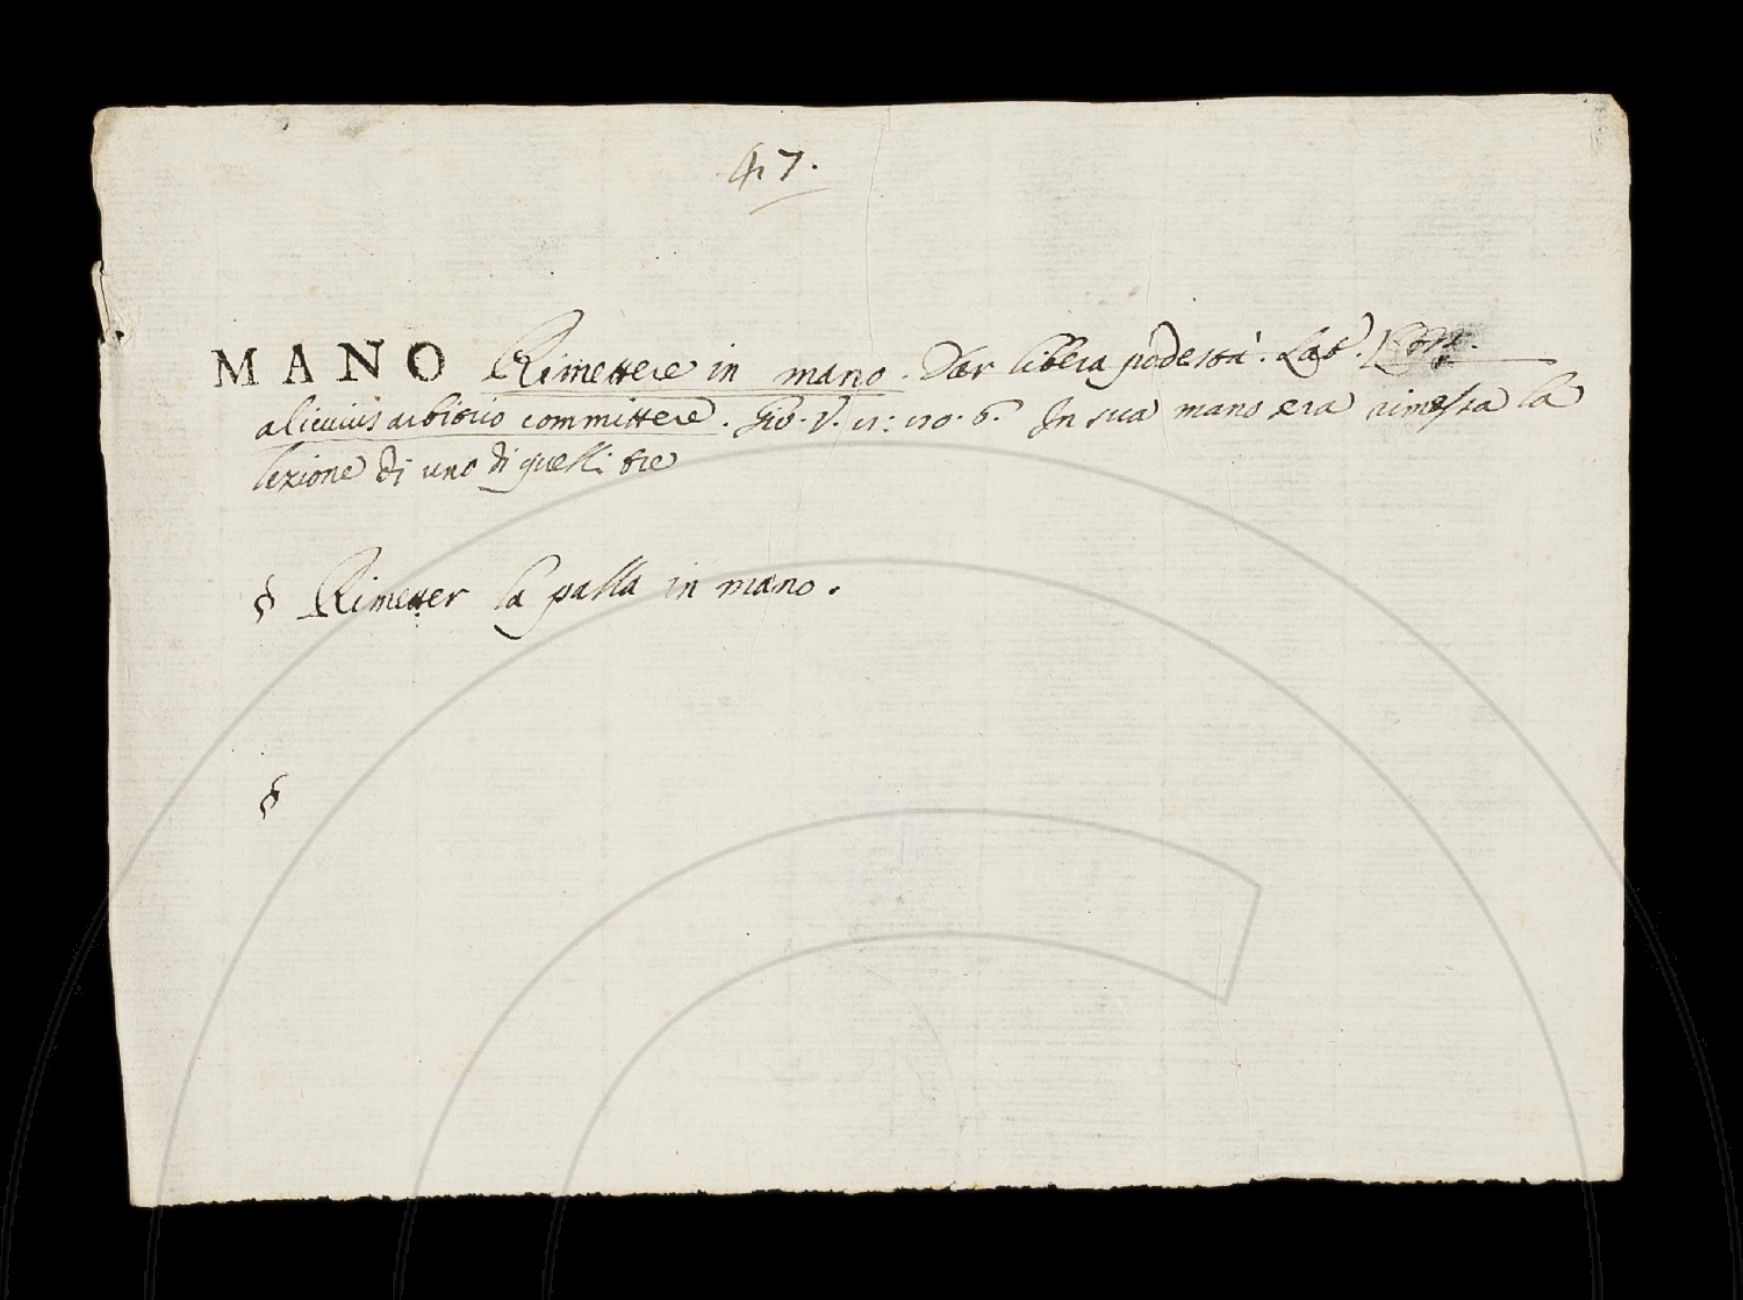 47.
MANO Rimettere in mano. Dar libera podestà. Lat.
alicuius arbitrio committere. Gio. V. 11: 110. 6. In sua mano era rimessa la
lezione di uno di quelli tre
§ Rimetter la palla in mano.
§